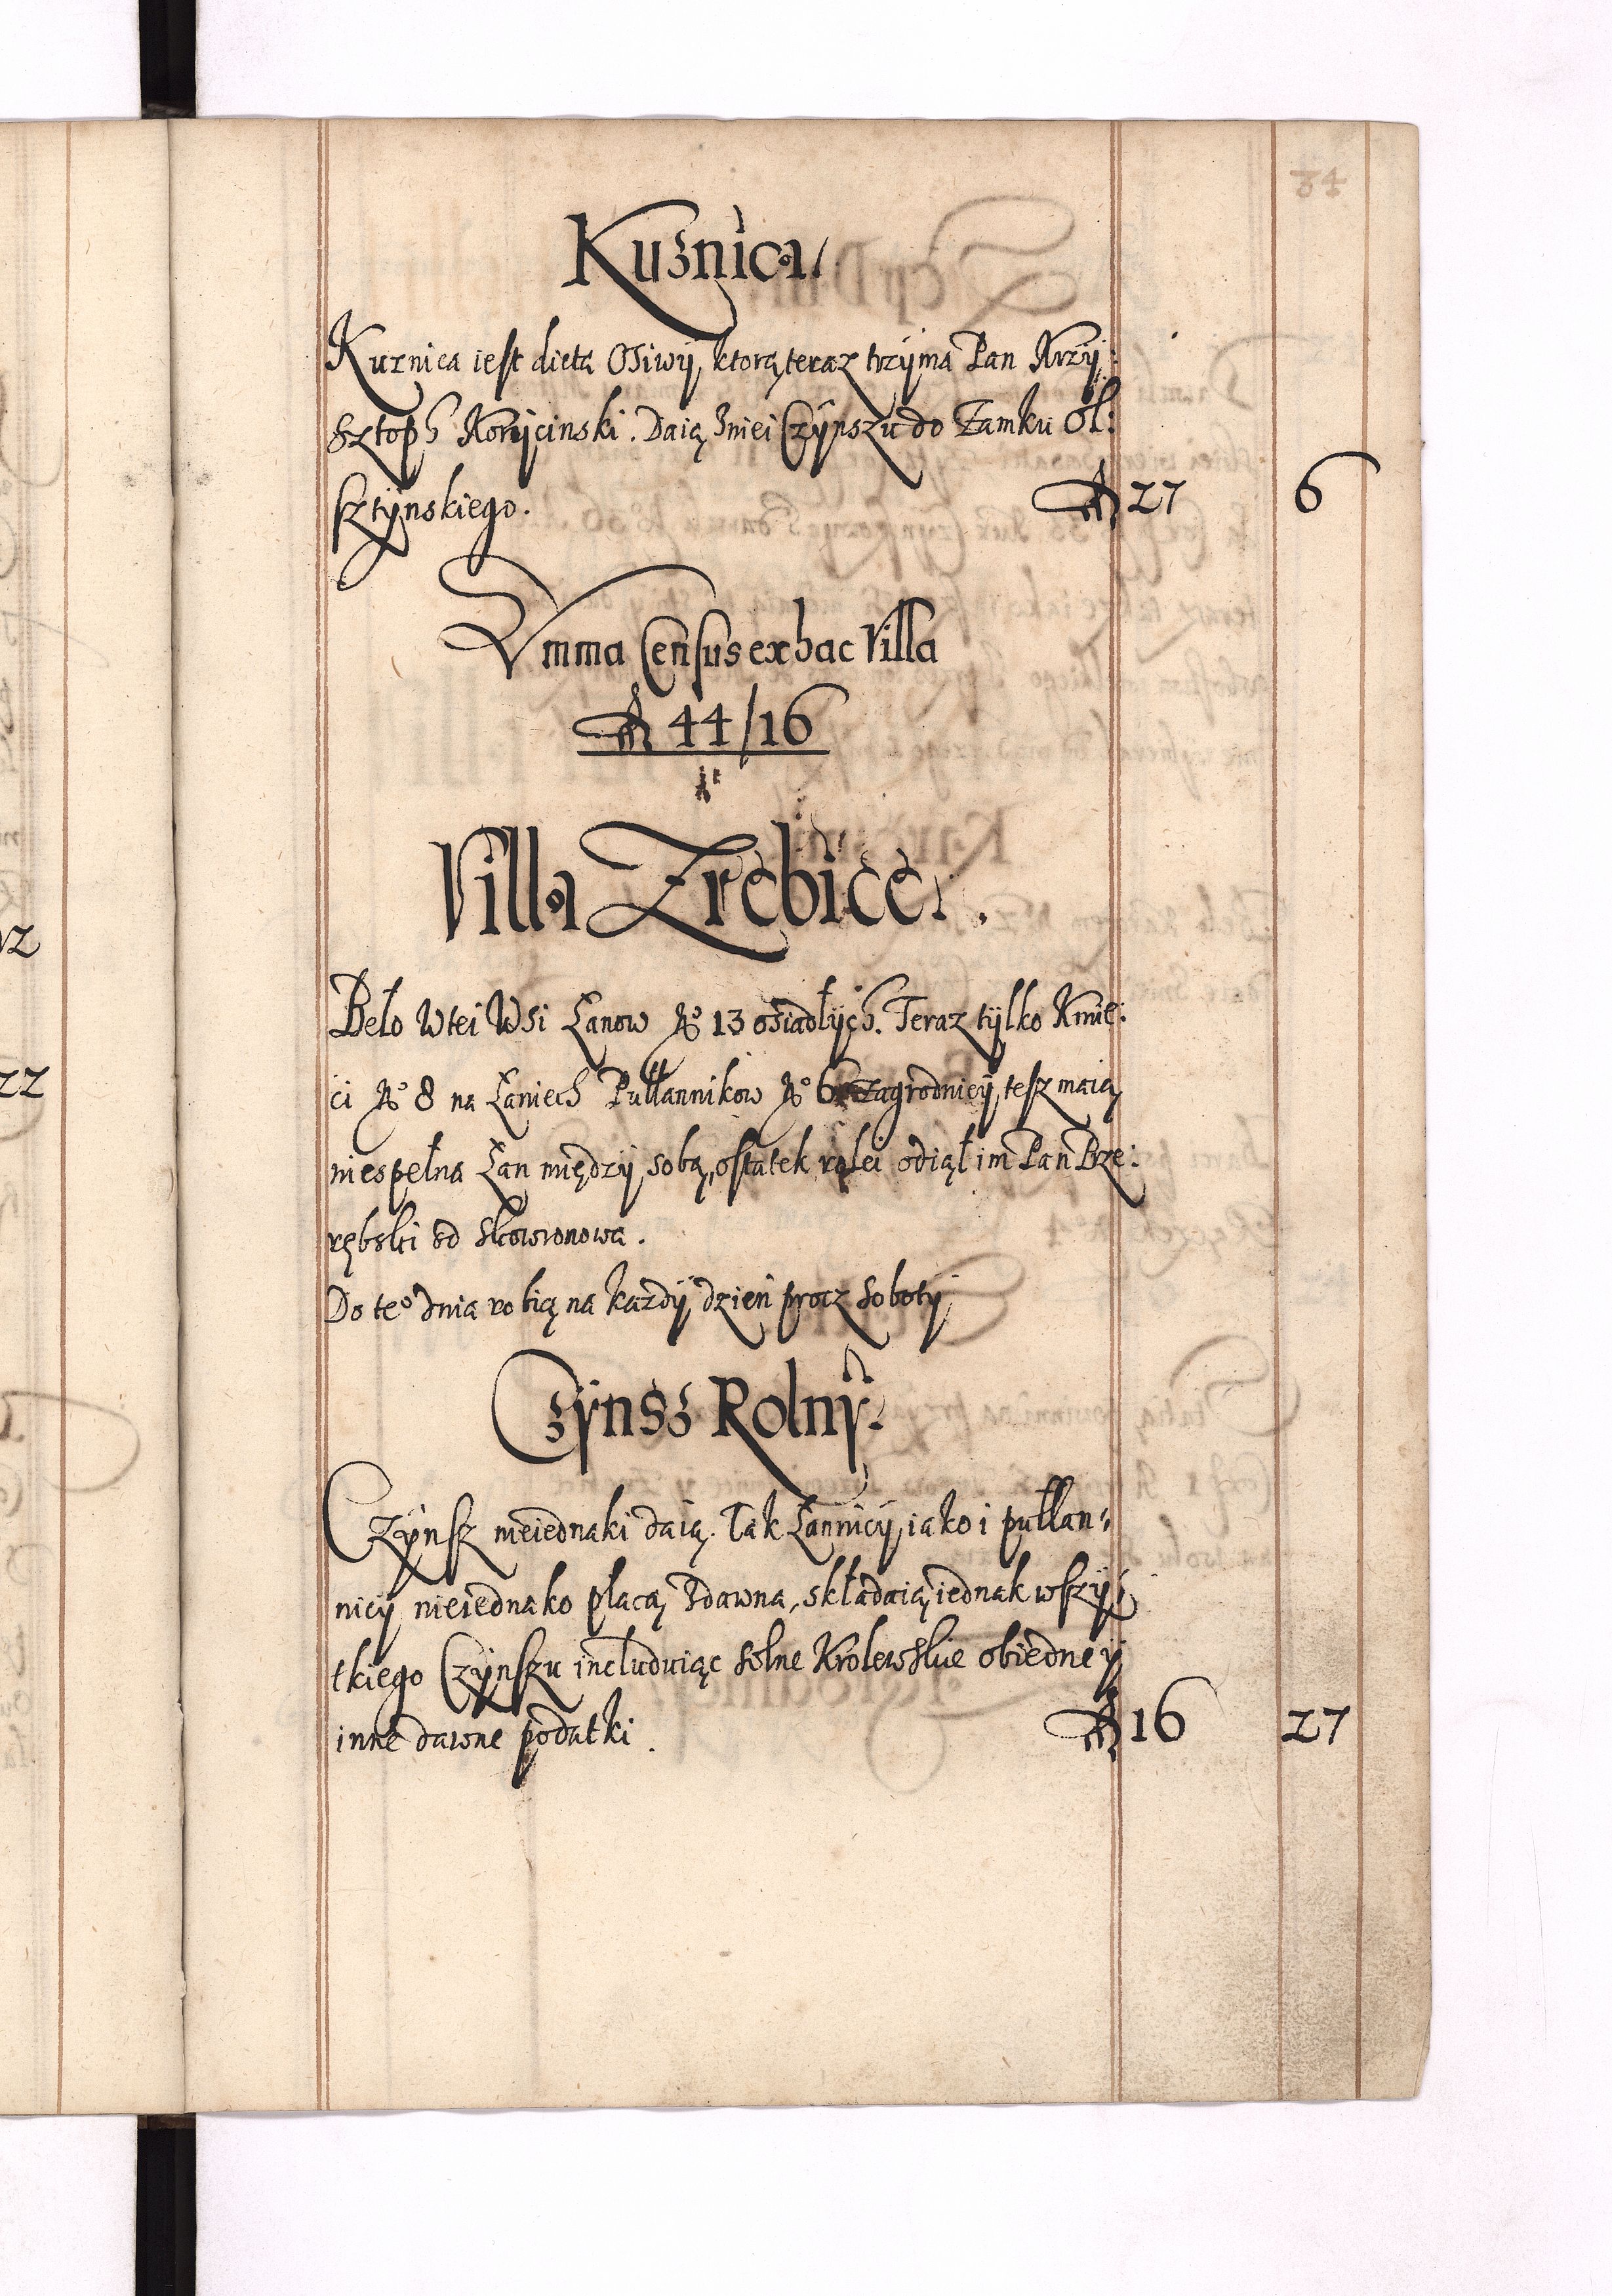 34
Kuznica
Kuznica iest dicta Osiwÿ, ktorą teraz trzÿma Pan Krzÿ:
sztoph Korÿcinski. Daią zniei Czÿnszu do Zamku Ol:
sztÿnskiego. 27 6
Summa Census ex hac Villa
44/16
Villa Zrebice.
Beło w tei Wsi Łanow No 13 osiadłÿch. Teraz tÿlko Kmie:
ci No 8 na Łaniech Pułłannikow No 6 zagrodnicÿ tesz maią
niespełna Łan międzÿ sobą, ostatek rolei odiął im Pan Prze:
rębski od Skowronowa.
Do teo dnia robią na kazdÿ dzień procz sobotÿ
Czÿnsz Rolnÿ.
Czÿnsz nieiednaki daią. Tak Łannicÿ iako i pułłan:
nicÿ nieiednako płacą zdawna, składaią iednak wszÿs
tkiego Czÿnszu includuiąc solne Krolewskie obiedne ÿ
inne dawne podatki. 16 27